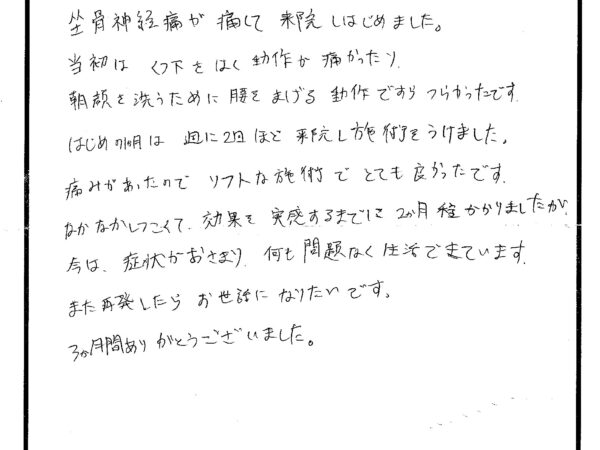 坐骨神経痛が痛くて来院しはじめました。
当初はくつ下をはく動作が痛かったり
朝顔を洗うために腰をまげる動作ですらつらかったです
はじめの1ヶ月は週に2回ほど来院し施術をうけました。
痛みがあったのでソフトな施術でとても良かったです。
なかなかしつこくて、効果を実感するまでに2か月程かかりましたが、
今は、症状がおさまり何も問題なく生活できています。
また再発したらお世話になりたいです。
3か月間ありがとうございました。